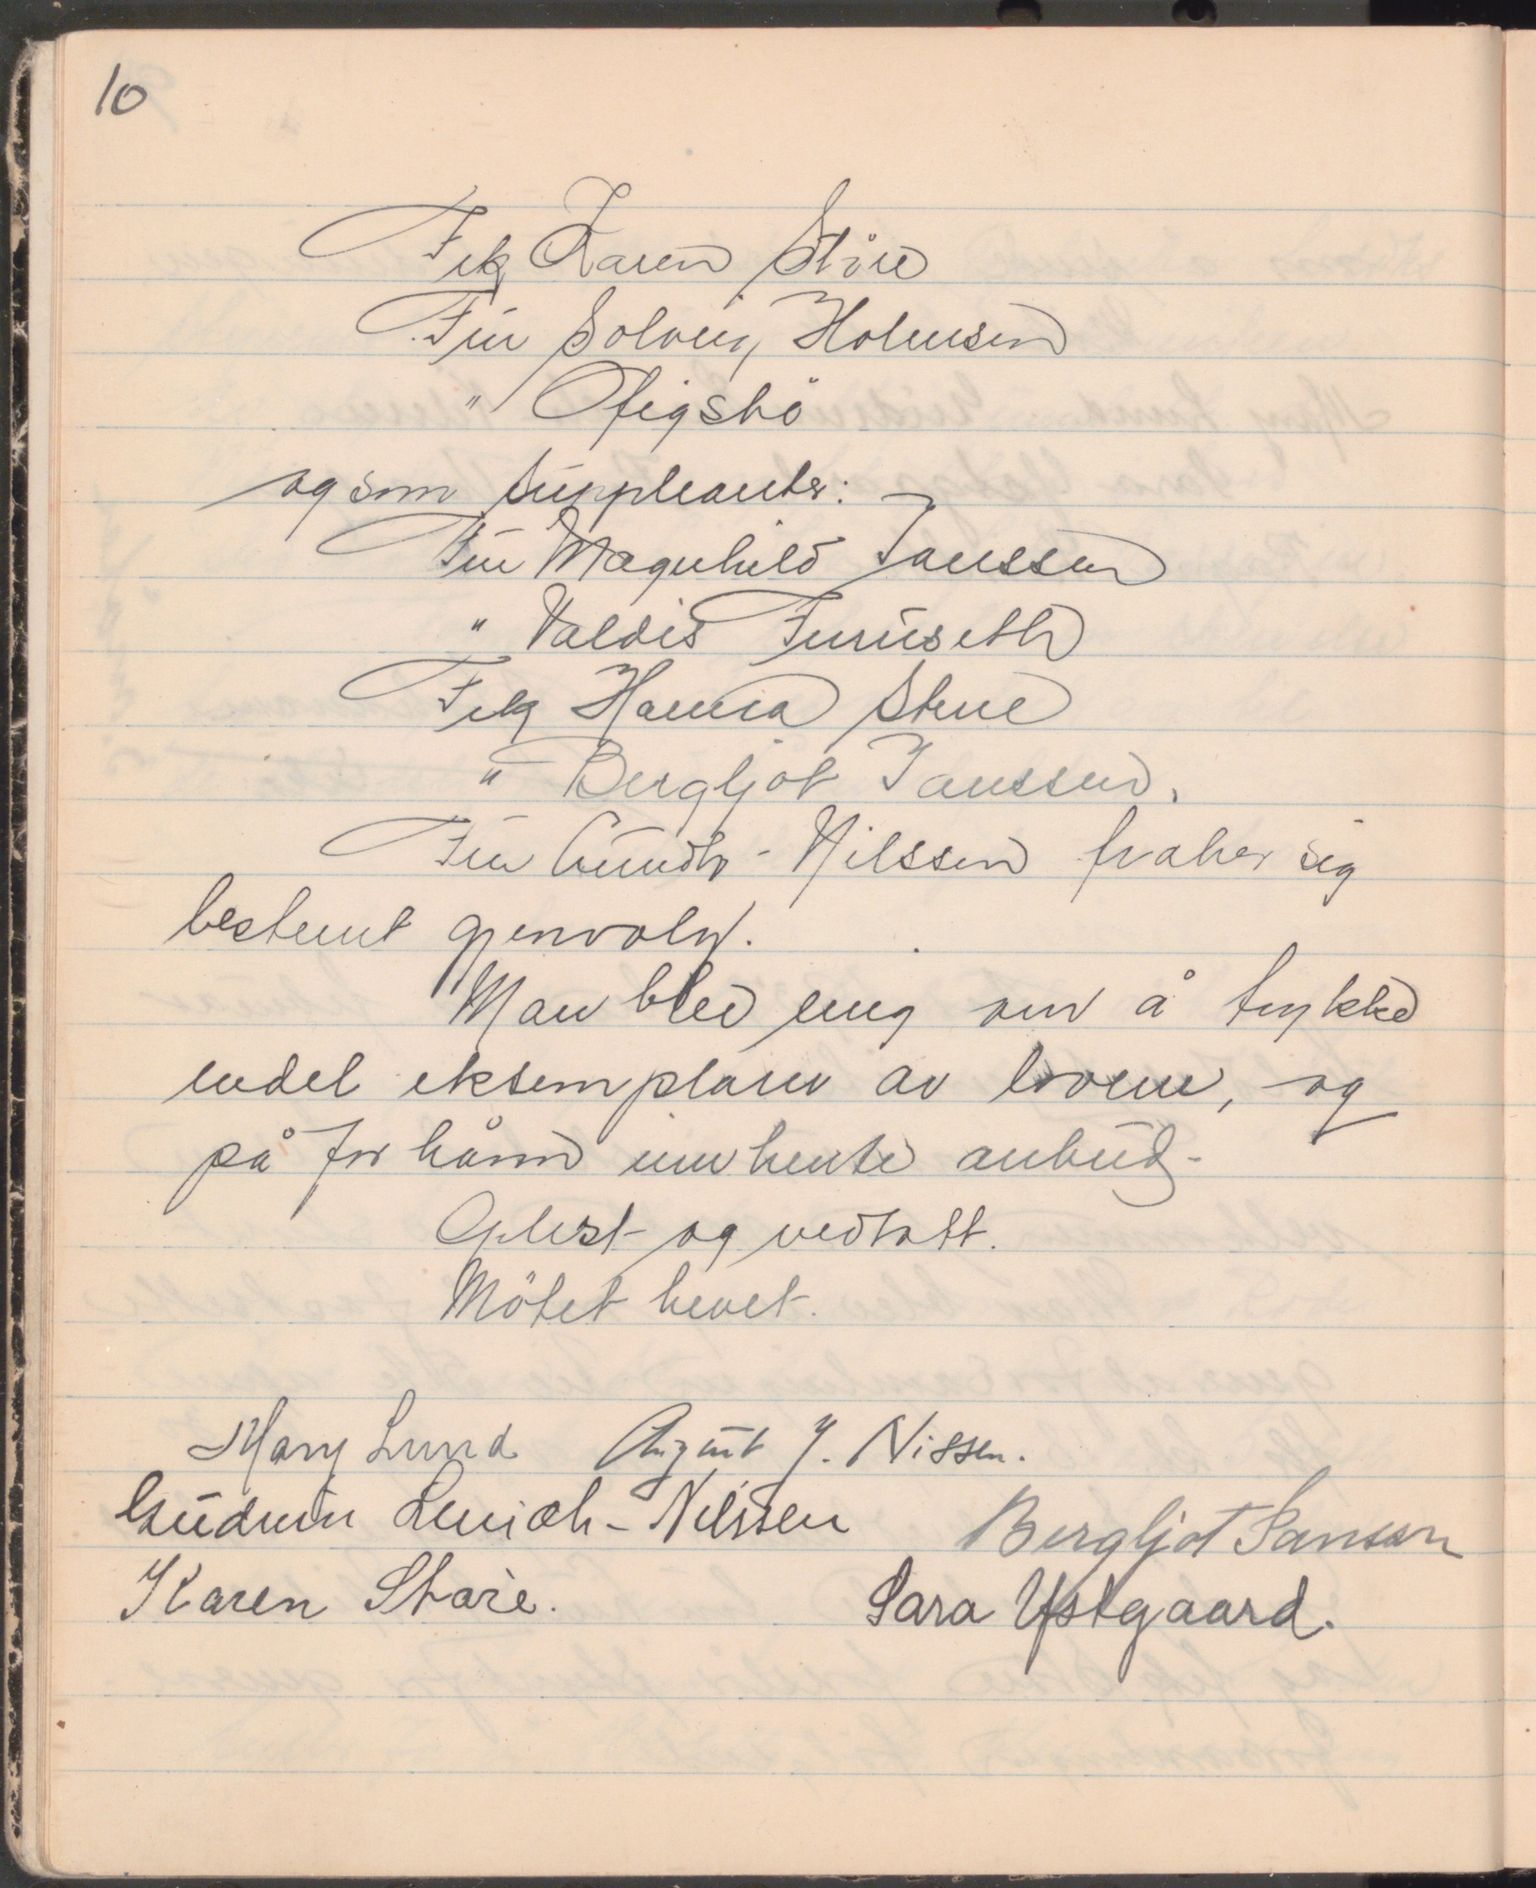 10
Frk Karen Støre
Fru Solveig Holmsen
" Ofigsbö
og som suppleanter:
Fru Magnhild Janssen
" Valdis Furuseth
Frk Hanna Stene
" Bergljot Janssen.
Fru Lund - Nilssen fraber sig
bestemt gjenvalg.
Man blev enig om å trykke
endel eksemplarer av lovene, og
på forhånd innhente anbud-
Oplest og vedtatt.
Mötet hevet.
Mary Lund August Y. Nissen.
Gudrun -Nilssen Bergljot Janssen
Karen Støre. Sara Ystgaard.